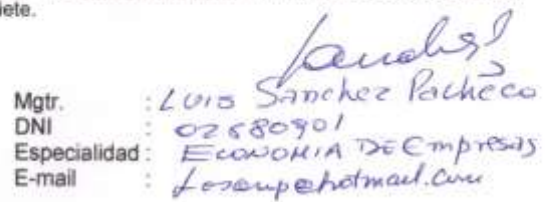 iete.
Mgtr. : LUIS Sanchez Pacheco
DNI : 02880901
Especialidad : ECONOMIA DE Empresas
E-mail :